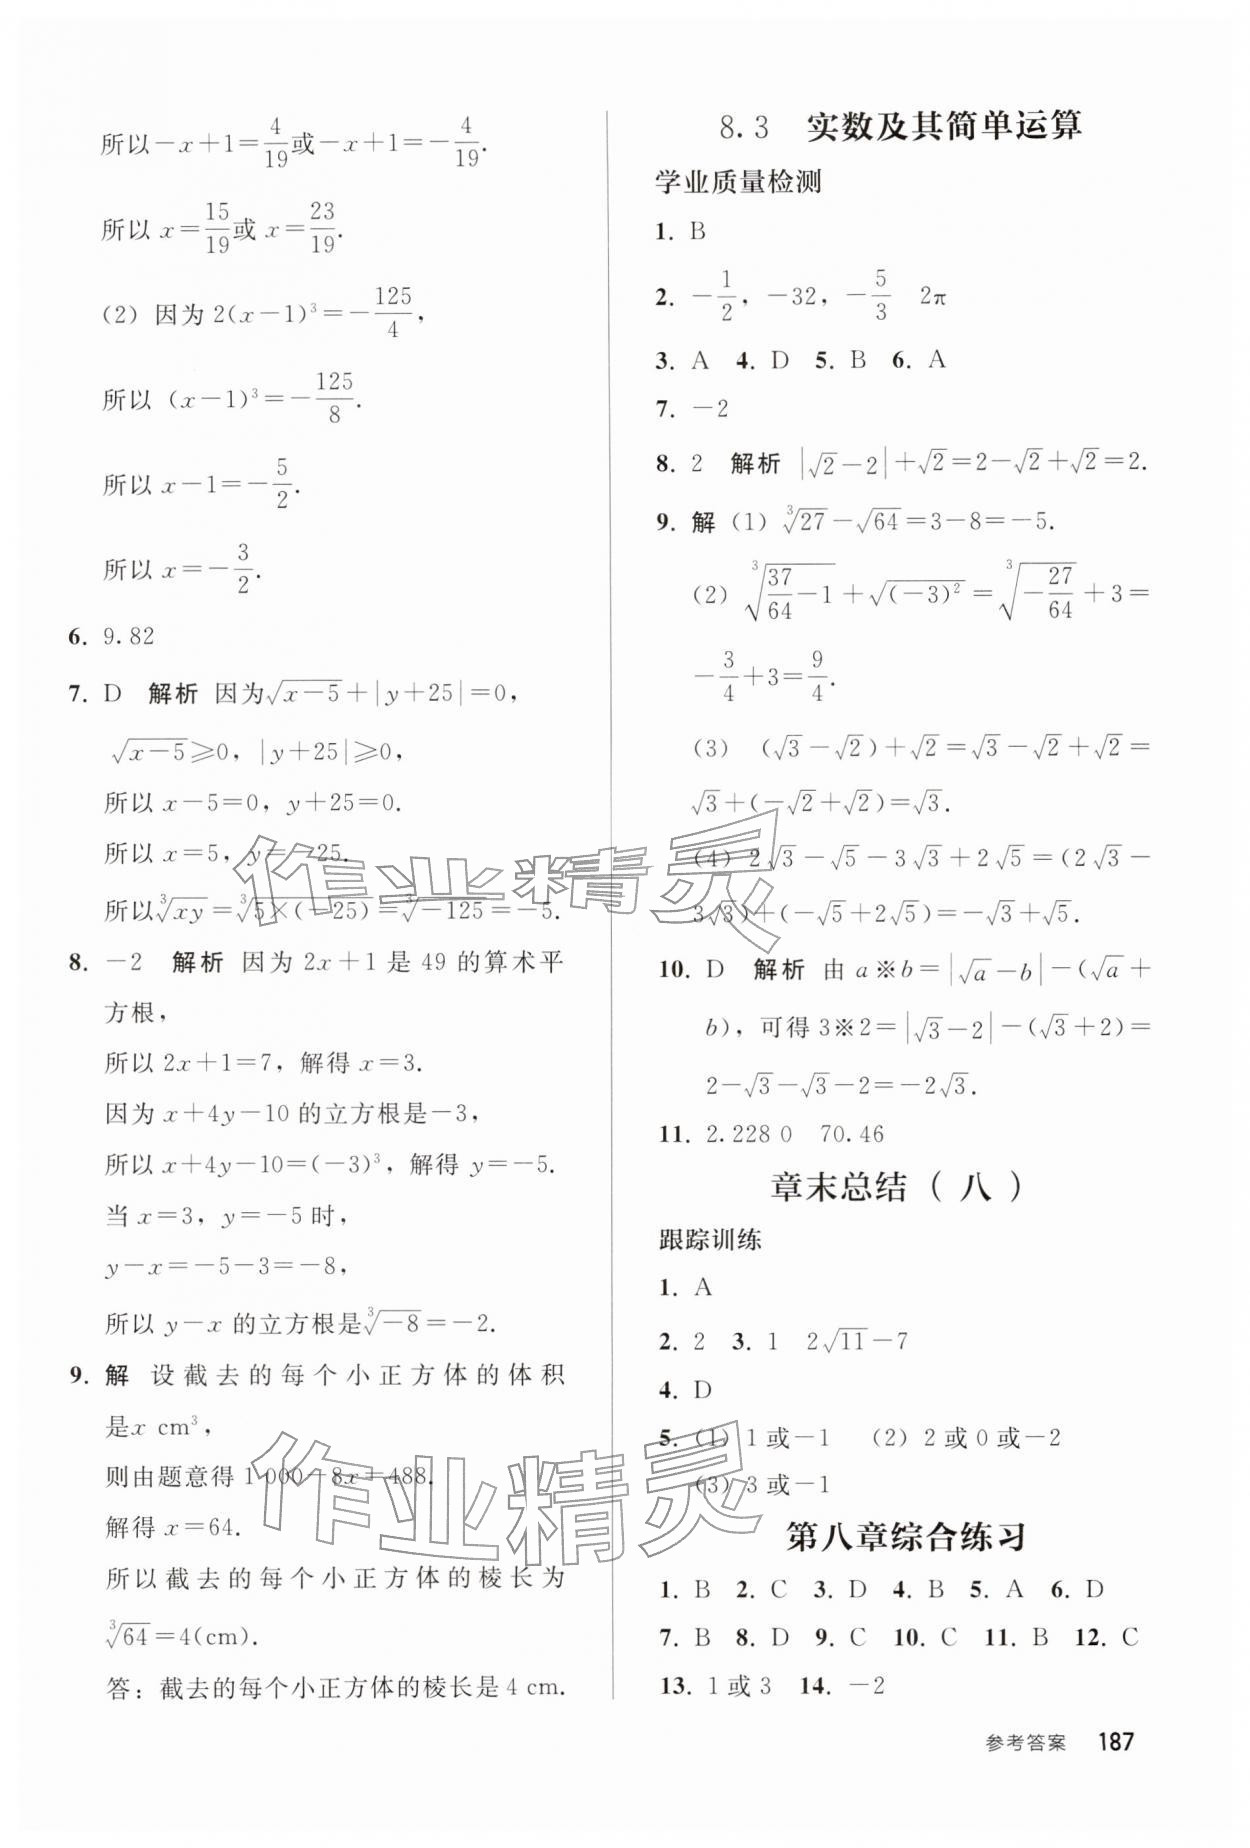 所以－x＋1＝4/19或－x＋1＝－4/19.
所以 x＝15/19或 x＝23/19.
(2) 因为 2(x－1)³＝－125/4,
所以 (x－1)³＝－125/8.
所以 x－1＝－5/2.
所以 x＝－3/2.
6. 9.82
7. D 解析 因为√(x－5)＋|y＋25|＝0,
√(x－5)≥0, |y＋25|≥0,
所以 x－5＝0, y＋25＝0.
所以 x＝5, y＝－25.
所以∛(xy)＝∛(5×(－25))＝∛(－125)＝－5.
8. －2 解析 因为 2x＋1 是 49 的算术平
方根,
所以 2x＋1＝7, 解得 x＝3.
因为 x＋4y－10 的立方根是－3,
所以 x＋4y－10＝(－3)³, 解得 y＝－5.
当 x＝3, y＝－5 时,
y－x＝－5－3＝－8,
所以 y－x 的立方根是∛(－8)＝－2.
9. 解 设截去的每个小正方体的体积
是x cm³,
则由题意得 1 000－8x＝488.
解得 x＝64.
所以截去的每个小正方体的棱长为
∛64＝4(cm).
答: 截去的每个小正方体的棱长是 4 cm.
8.3 实数及其简单运算
学业质量检测
1. B
2. －1/2, －32, －5/3 2π
3. A 4. D 5. B 6. A
7. －2
8. 2 解析 |√2－2|＋√2＝2－√2＋√2＝2.
9. 解 (1) ∛27－√64＝3－8＝－5.
(2) ∛(37/64－1)＋√((－3)²)＝∛(－27/64)＋3＝
－3/4＋3＝9/4.
(3) (√3－√2)＋√2＝√3－√2＋√2＝
√3＋(－√2＋√2)＝√3.
(4) 2√3－√5－3√3＋2√5＝(2√3－
3√3)＋(－√5＋2√5)＝－√3＋√5.
10. D 解析 由 a※b＝|√a－b|－(√a＋
b), 可得 3※2＝|√3－2|－(√3＋2)＝
2－√3－√3－2＝－2√3.
11. 2.228 0 70.46
章末总结（八）
跟踪训练
1. A
2. 2 3. 1 2√11－7
4. D
5. (1) 1 或－1 (2) 2 或 0 或－2
(3) 3 或－1
第八章综合练习
1. B 2. C 3. D 4. B 5. A 6. D
7. B 8. D 9. C 10. C 11. B 12. C
13. 1 或 3 14. －2
参考答案 187
作业精灵
作业精灵